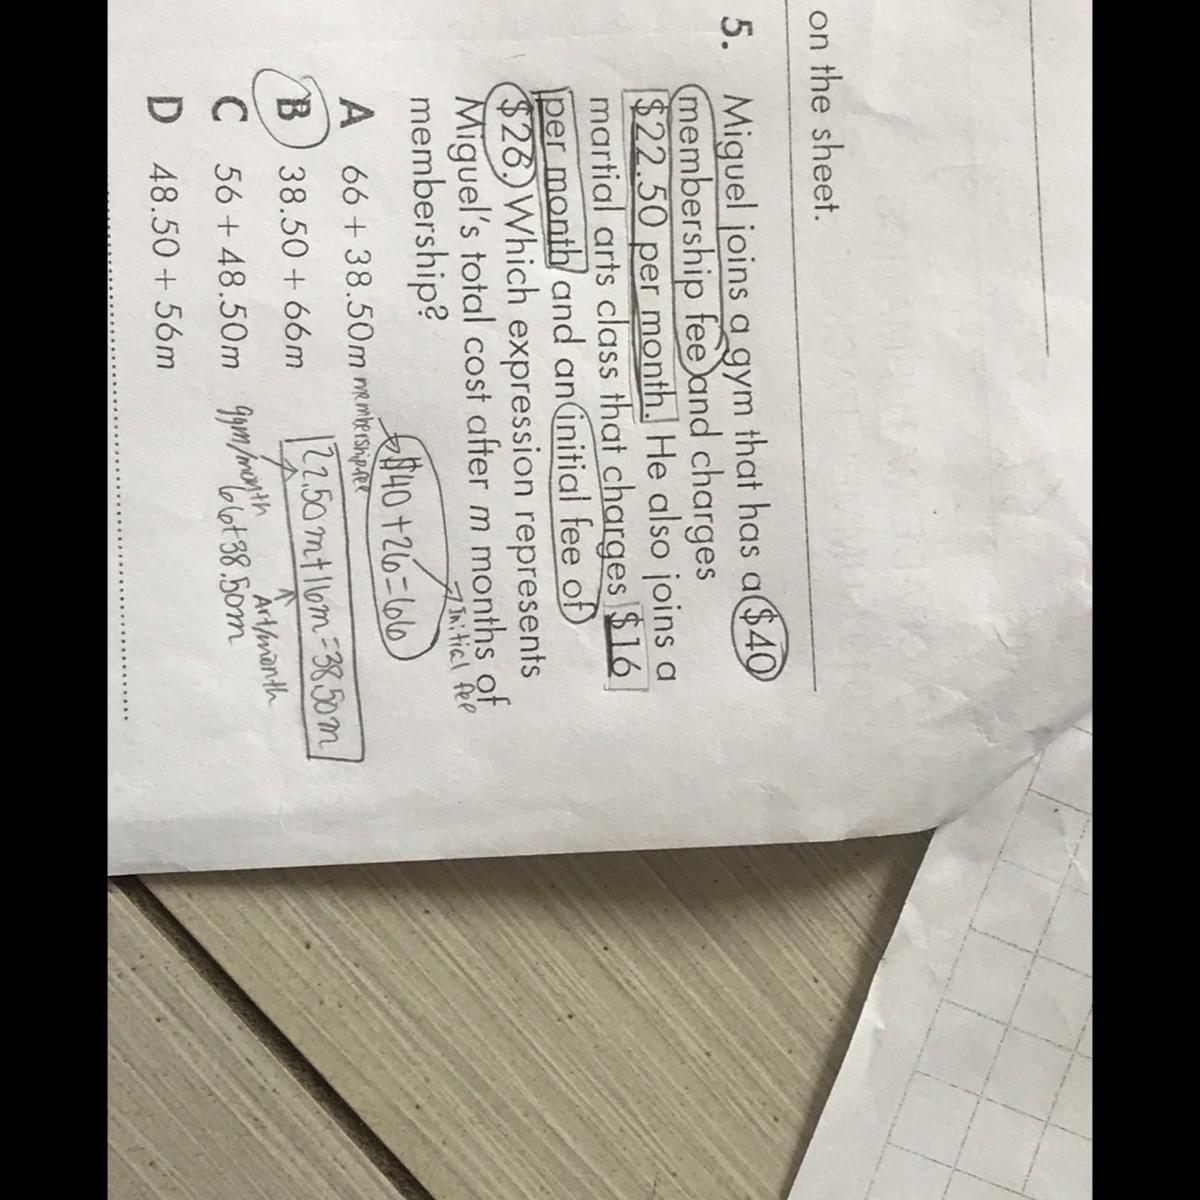 on the sheet.
5. Miguel joins a gym that has a $40
membership fee and charges
$22.50 per month. He also joins a
martial arts class that charges $16
per month and an initial fee of
$26. Which expression represents
Miguel's total cost after m months of
membership?
Initial fee
$40+26=66
membership fee
A 66 + 38.50m
22.50m+16m=38.50m
B 38.50 + 66m
gym/month Art/month
C 56 + 48.50m
66+38.50m
D 48.50 + 56m